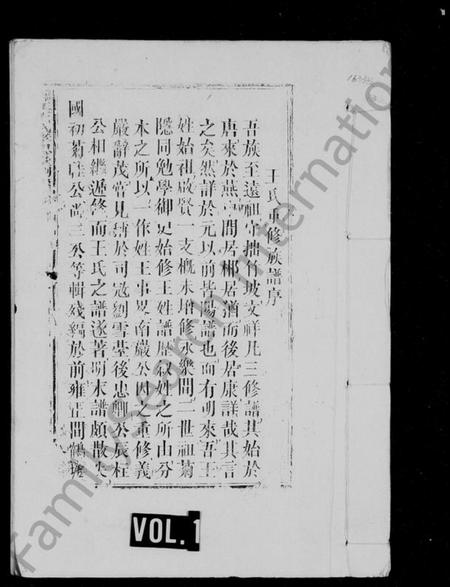 王氏重修族譜序
吾族至遠祖宇擂竹坡文祥凡三修譜其始於
唐來於燕宁間居郴居酒而後居康詳哉其言
之矣然詳於元以前皆舊譜也而有明來吾王
姓始祖敬賢一支概未增修永樂間一世祖菊
隱同勉學御史始修王姓譜歷叙姓之所由分
本之所以一作姓王事畧南嚴公因之重修義
嚴辭茂常見稱於司寇劉雪臺後忠卿公辰柱
公相繼遞修而王氏之譜遂著明末譜頗散失
國初菊莊公尚三公等輯殘編於前雍正間鶴
VOL. 1
familysearch international